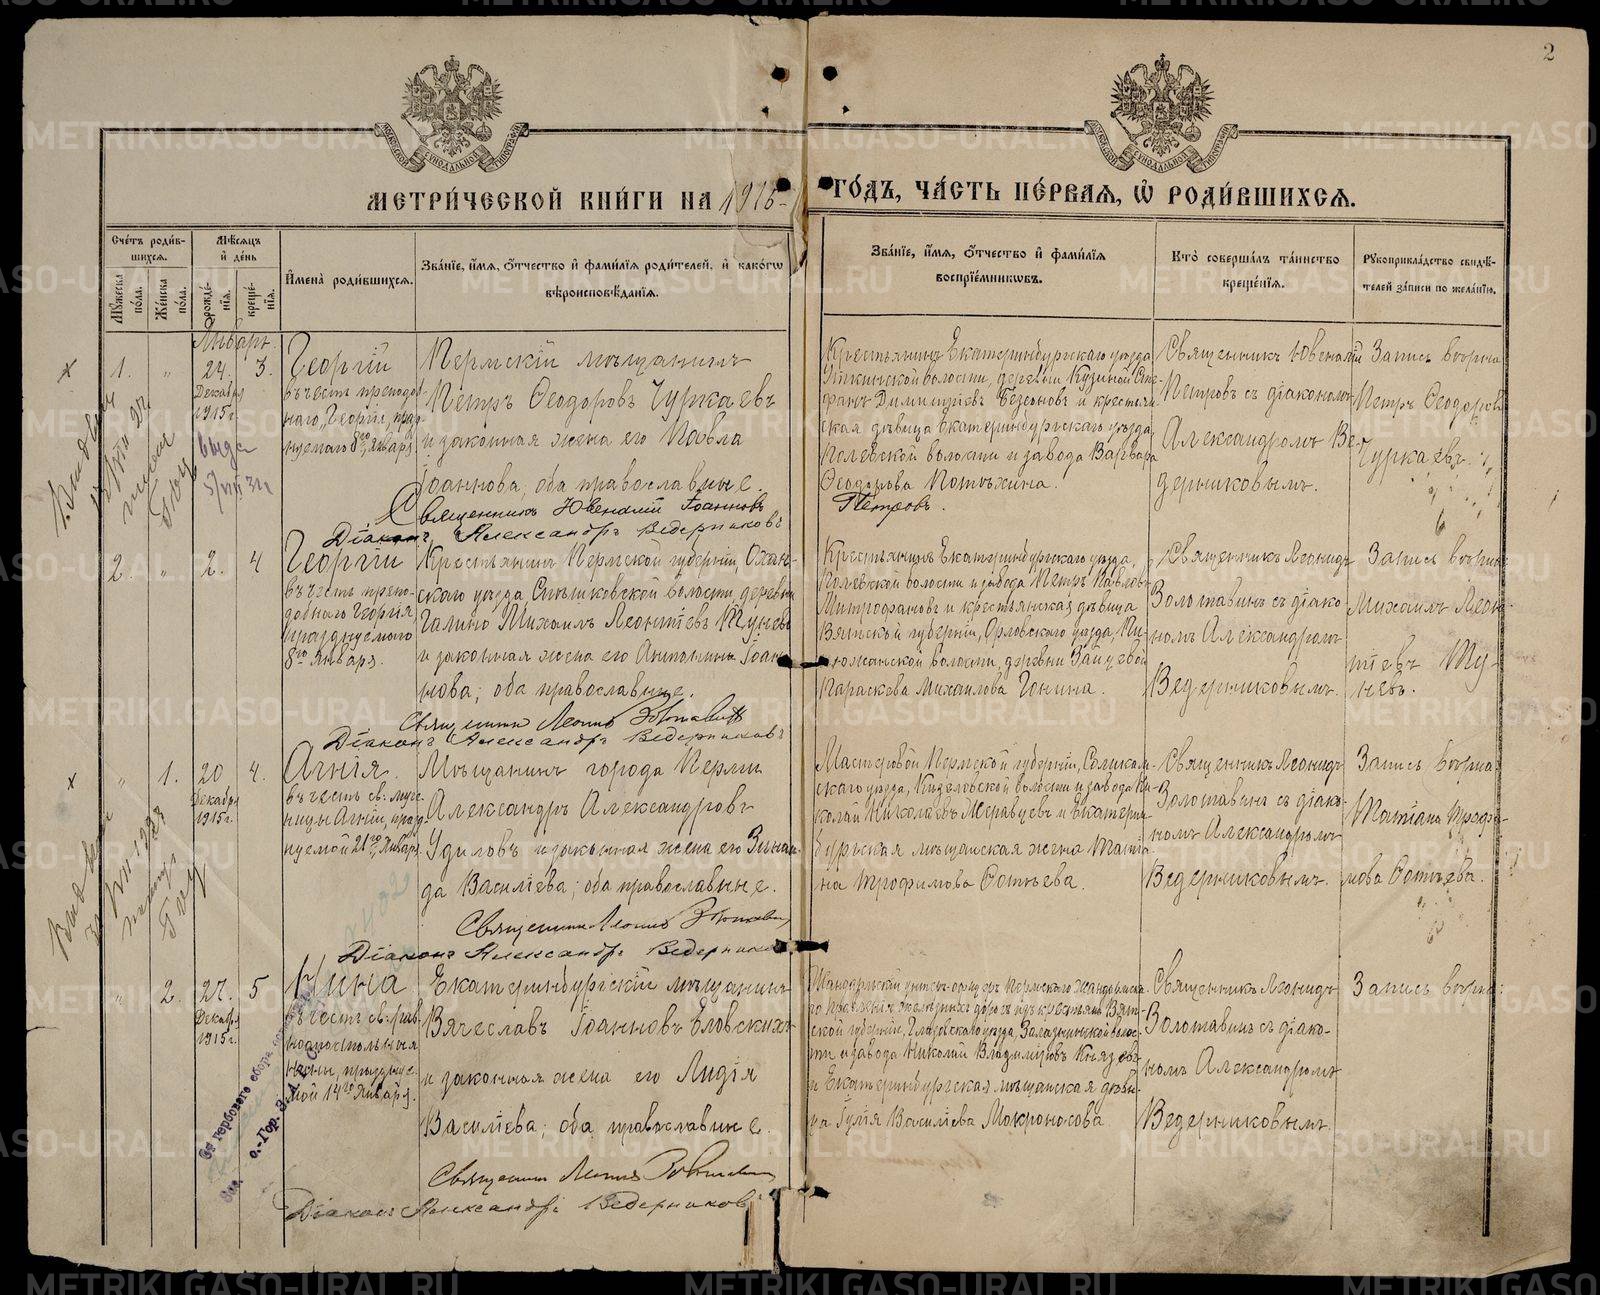 2
МОСКОВСКОЙ СѴНОДАЛЬНОЙ ТИПОГРАФІИ
МОСКОВСКОЙ СѴНОДАЛЬНОЙ ТИПОГРАФІИ
МЕТРИ́ЧЕСКОЙ КНИ́ГИ НА 1916
ГО́ДЪ, ЧА́СТЬ ПЕ́РВАЯ, Ѽ РОДИ́ВШИХСЯ.
Сче́тъ роди́в-
шихся.
Му́жеска по́ла.
Же́нска по́ла.
Мѣ́сяцъ
и҆ де́нь
рожде́-
нїя.
креще́-
нїя.
И҆мена̀ роди́вшихся.
Зва́нїе, и҆́мя, ѻ҆́тчество и҆ фами́лїя роди́телей, и҆ како́гѡ
вѣроисповѣ́данїя.
Зва́нїе, и҆́мя, ѻ҆́тчество и҆ фами́лїя
воспрїе́мникѡвъ.
Кто̀ соверша́лъ та́инство
креще́нїя.
Рꙋкоприкла́дство свидѣ́-
телей за́писи по жела́нїю.
Январь.
1.
„
24.
Декабря
1915 г.
3.
Георгій
въ честь преподоб-
наго Георгія, празд-
нуемаго 8го Января
Пермскій мѣщанинъ
Петръ Ѳеодоровъ Чуркаевъ
и законная жена его Павла
Іоаннова, оба православные.
Священникъ Ювеналій Іоанновъ
Петровъ.
Діаконъ Александръ Ведерниковъ
Крестьянинъ Екатеринбургскаго уѣзда
Уткинской волости, деревни Кузиной Сте-
фанъ Димитріевъ Безсоновъ и крестьян-
ская дѣвица Екатеринбургскаго уѣзда
Полевской волости и завода Варвара
Ѳеодорова Потѣхина.
Священникъ Ювеналій
Петровъ съ діакономъ
Александромъ Ве-
дерниковымъ.
Запись вѣрна
Петръ Ѳеодоровъ
Чуркаевъ
2.
„
2.
4
Георгій
въ честь препо-
добнаго Георгія
празднуемаго
8го Января.
Крестьянинъ Пермской губерніи, Охан-
скаго уѣзда, волости, деревни
Галино Михаилъ Леонтіевъ Туневъ
и законная жена его Антонина Іоан-
нова; оба православные.
Священникъ Леонидъ Золотавинъ
Діаконъ Александръ Ведерниковъ
Крестьянинъ Екатеринбургскаго уѣзда,
Полевской волости и завода Петръ Павловъ
Митрофановъ и крестьянская дѣвица
Вятской губерніи, Орловскаго уѣзда, Пи-
южанской волости, деревни Зайцевой
Параскева Михаилова Гонина.
Священникъ Леонидъ
Золотавинъ съ діако-
номъ Александромъ
Ведерниковымъ.
Запись вѣрна
Михаилъ Леон-
тіевъ Ту-
невъ.
„
1.
20
Декабря
1915 г.
4.
Агнія.
въ честь св. муче-
ницы Агніи, празд-
нуемой 21го Января
Мѣщанинъ города Перми
Александръ Александровъ
Удиловъ и законная жена его Зинаи-
да Василіева; оба православные.
Священникъ Леонидъ Золотавинъ
Діаконъ Александръ Ведерниковъ
Мастеровой Пермской губерніи, Соликам-
скаго уѣзда, Кизеловской волости и завода Ни-
колай Николаевъ Меравцевъ и Екатерин-
бургская мѣщанская жена Татія-
на Трофимова Сотѣева.
Священникъ Леонидъ
Золотавинъ съ діако-
номъ Александромъ
Ведерниковымъ.
Запись вѣрна
Татіана Трофи-
мова Сотѣева.
„
2.
27.
Декабря
1915 г.
5
Нина
въ честь св. рав-
ноапостольныя
Нины, празднуе-
мой 14го Января.
Екатеринбургскій мѣщанинъ
Вячеславъ Іоанновъ Еловскихъ
и законная жена его Лидія
Василіева; оба православные.
Священникъ Леонидъ Золотавинъ
Діаконъ Александръ Ведерниковъ
Жандармскій унтеръ-офицеръ Пермскаго жандармска-
го Управленія желѣзныхъ дорогъ изъ крестьянъ Вят-
ской губерніи, Глазовскаго уѣзда, Залазнинской волос-
ти и завода Николай Владиміровъ Князевъ
и Екатеринбургская мѣщанская дѣви-
ца Юлія Василіева Мокроносова.
Священникъ Леонидъ
Золотавинъ съ діако-
номъ Александромъ
Ведерниковымъ.
Запись вѣрна:
От гербового сбора
METRIKI.GASO-URAL.RU